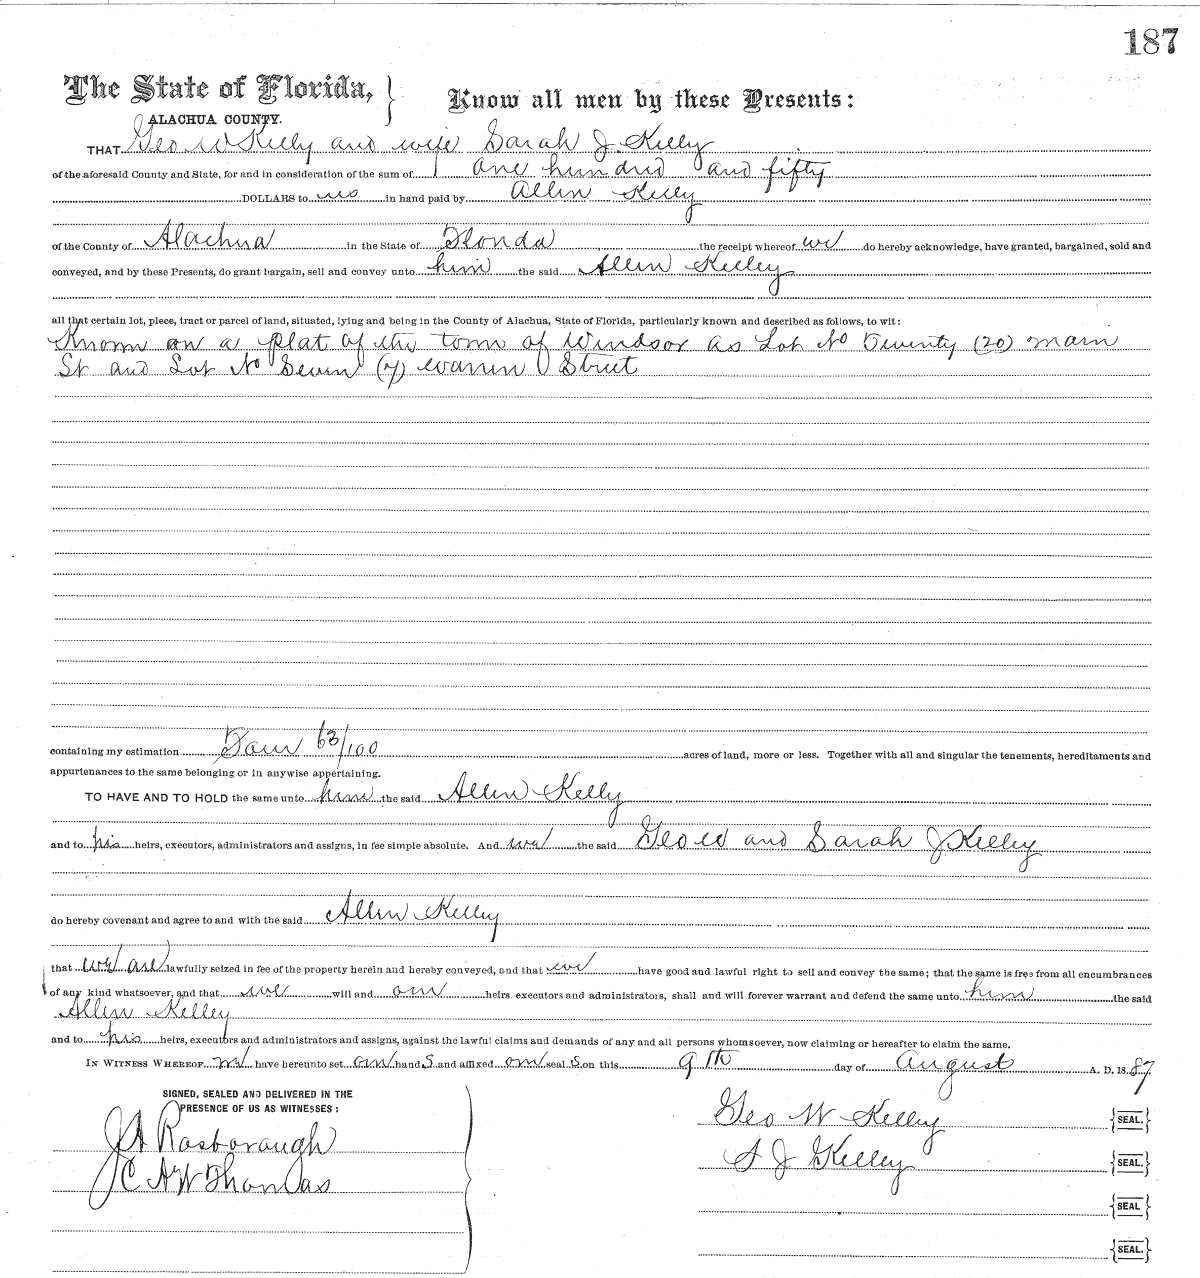 187
The State of Florida, } Know all men by these Presents:
ALACHUA COUNTY.
THAT Geo W Kelley and wife Sarah J. Kelley
of the aforesaid County and State, for and in consideration of the sum of one hundred and fifty
DOLLARS to us in hand paid by Allen Kelley
of the County of Alachua in the State of Florida the receipt whereof we do hereby acknowledge, have granted, bargained, sold and
conveyed, and by these Presents, do grant bargain, sell and convey unto him the said Allen Kelley
all that certain lot, piece, tract or parcel of land, situated, lying and being in the County of Alachua, State of Florida, particularly known and described as follows, to wit:
Known on a plat of the town of Windsor as Lot No Twenty (20) Main
St and Lot No Seven (7) Warren Street
containing my estimation Four 63/100 acres of land, more or less. Together with all and singular the tenements, hereditaments and
appurtenances to the same belonging or in anywise appertaining.
TO HAVE AND TO HOLD the same unto him the said Allen Kelley
and to his heirs, executors, administrators and assigns, in fee simple absolute. And we the said Geo W and Sarah J Kelley
do hereby covenant and agree to and with the said Allen Kelley
that we are lawfully seized in fee of the property herein and hereby conveyed, and that we have good and lawful right to sell and convey the same; that the same is free from all encumbrances
of any kind whatsoever, and that we will and our heirs, executors and administrators, shall and will forever warrant and defend the same unto him the said
Allen Kelley
and to his heirs, executors and administrators and assigns, against the lawful claims and demands of any and all persons whomsoever, now claiming or hereafter to claim the same.
IN WITNESS WHEREOF we have hereunto set our hand s and affixed our seal s on this 9th day of August A. D. 1887.
SIGNED, SEALED AND DELIVERED IN THE
PRESENCE OF US AS WITNESSES:
J A Rosborough
J C A W Thomas
Geo W Kelley {SEAL.}
S J Kelley {SEAL.}
{SEAL}
{SEAL.}